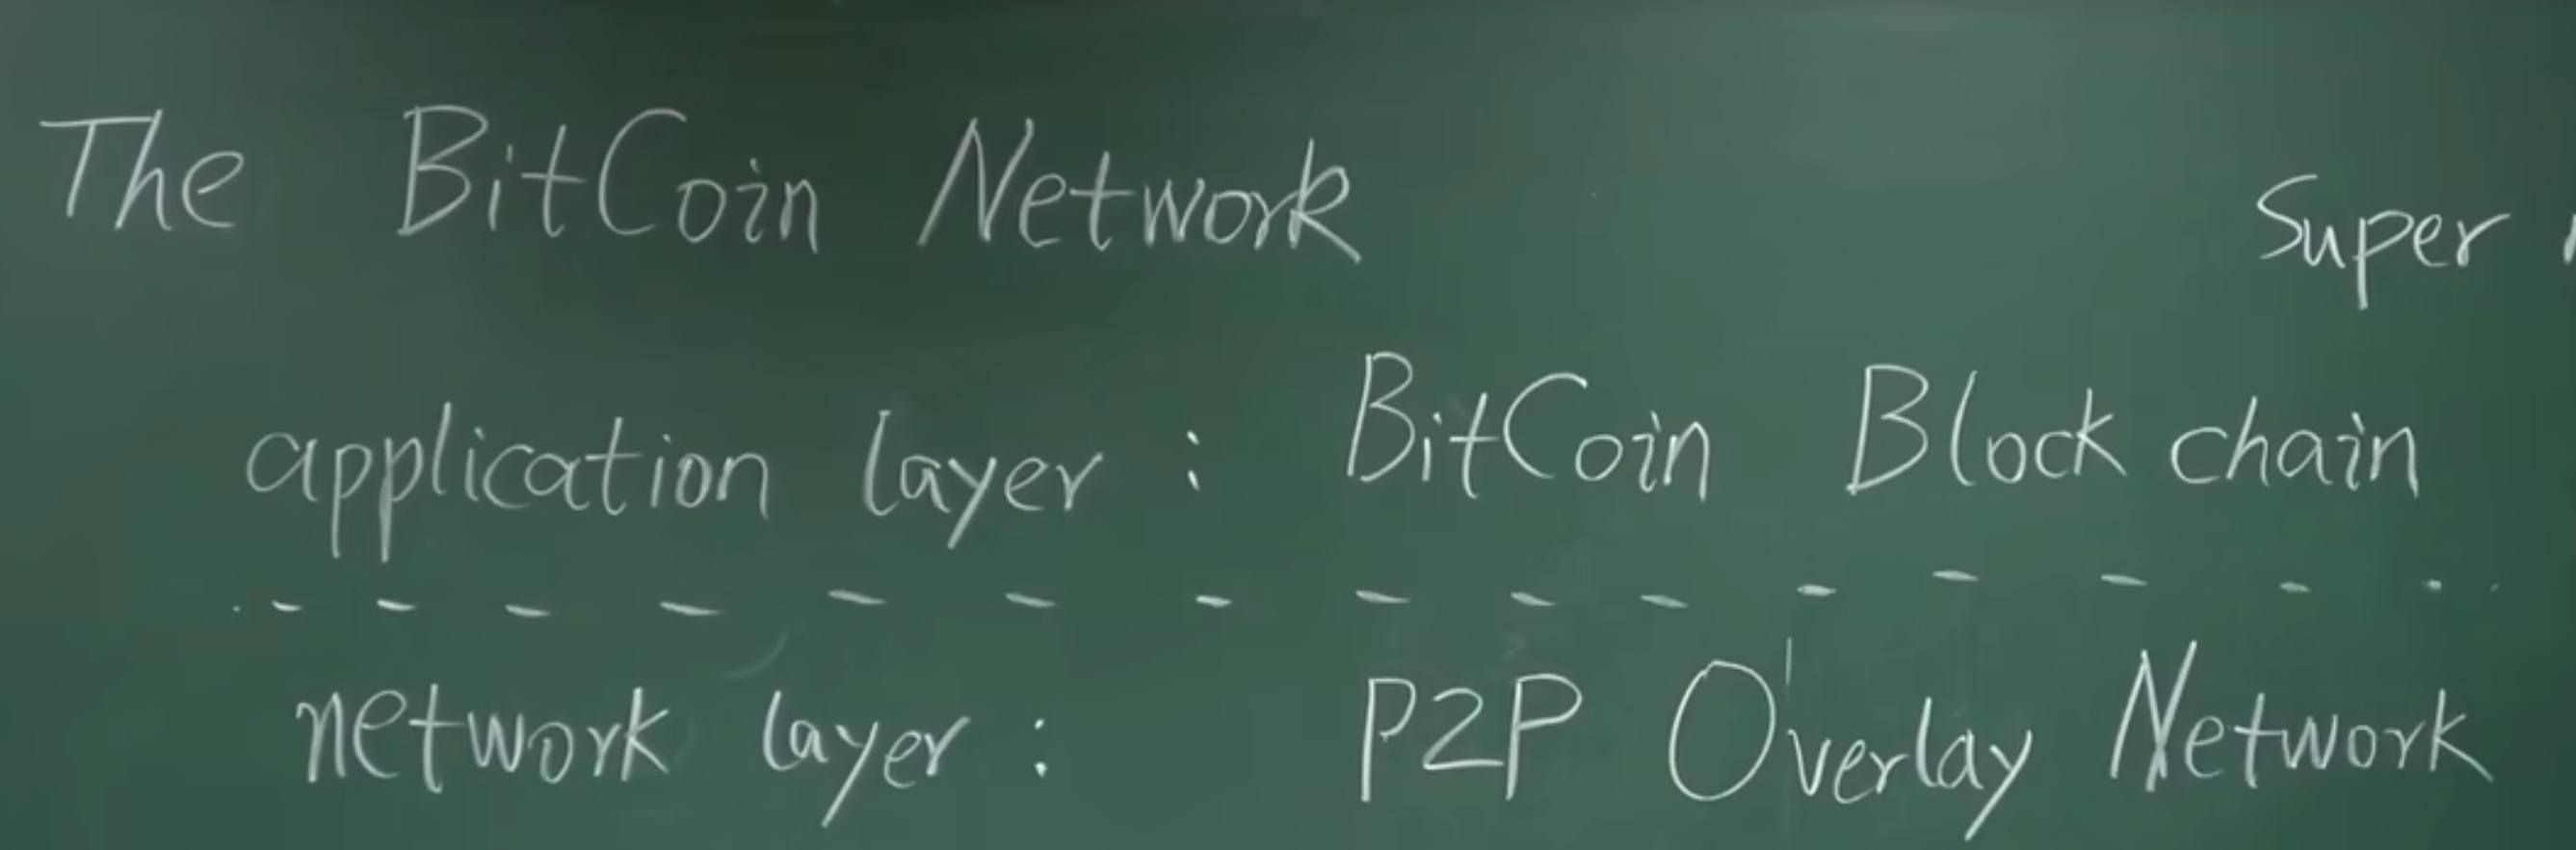 The BitCoin Network
Super
application layer : BitCoin Block chain
network layer : P2P Overlay Network